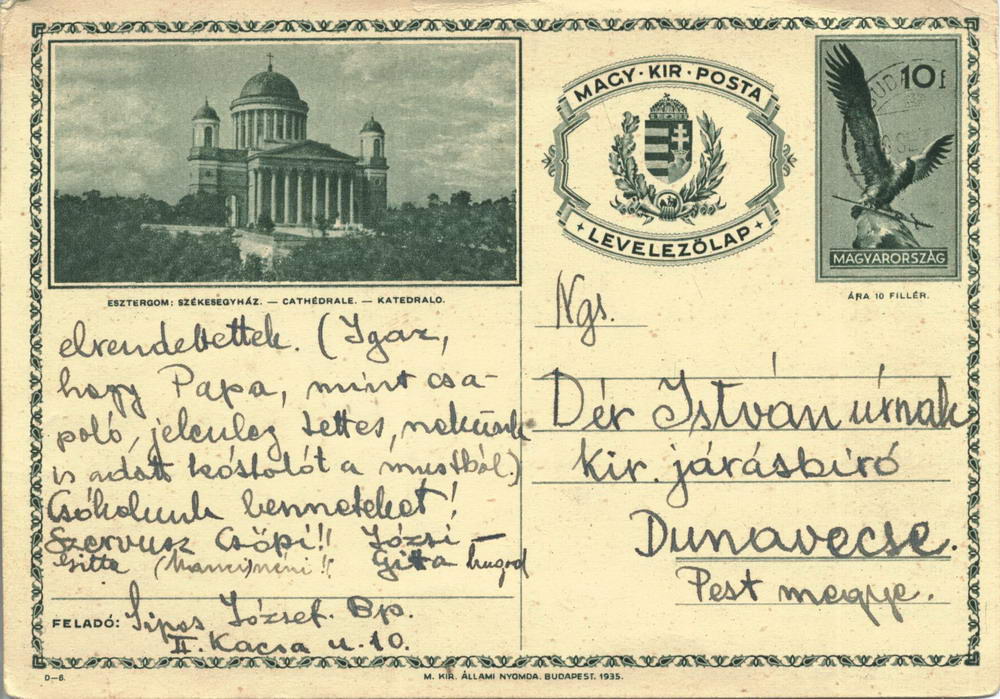 ESZTERGOM: SZÉKESEGYHÁZ. — CATHÉDRALE. — KATEDRALO.
elrendeltettek. (Igaz,
hogy Papa, mint csa-
poló, jelenleg tettes, nekünk
is adott kóstolót a mustból.)
Csókolunk benneteket!
Szervusz Csöpi!! Józsi
néni!! Gitta hugod
FELADÓ: Sipos József. Bp.
II. Kacsa u. 10.
MAGY · KIR · POSTA
LEVELEZŐLAP
10 f
MAGYARORSZÁG
ÁRA 10 FILLÉR.
Ngs.
Dér István úrnak
kir. járásbíró
Dunavecse.
Pest megye.
D—6.
M. KIR. ÁLLAMI NYOMDA. BUDAPEST. 1935.